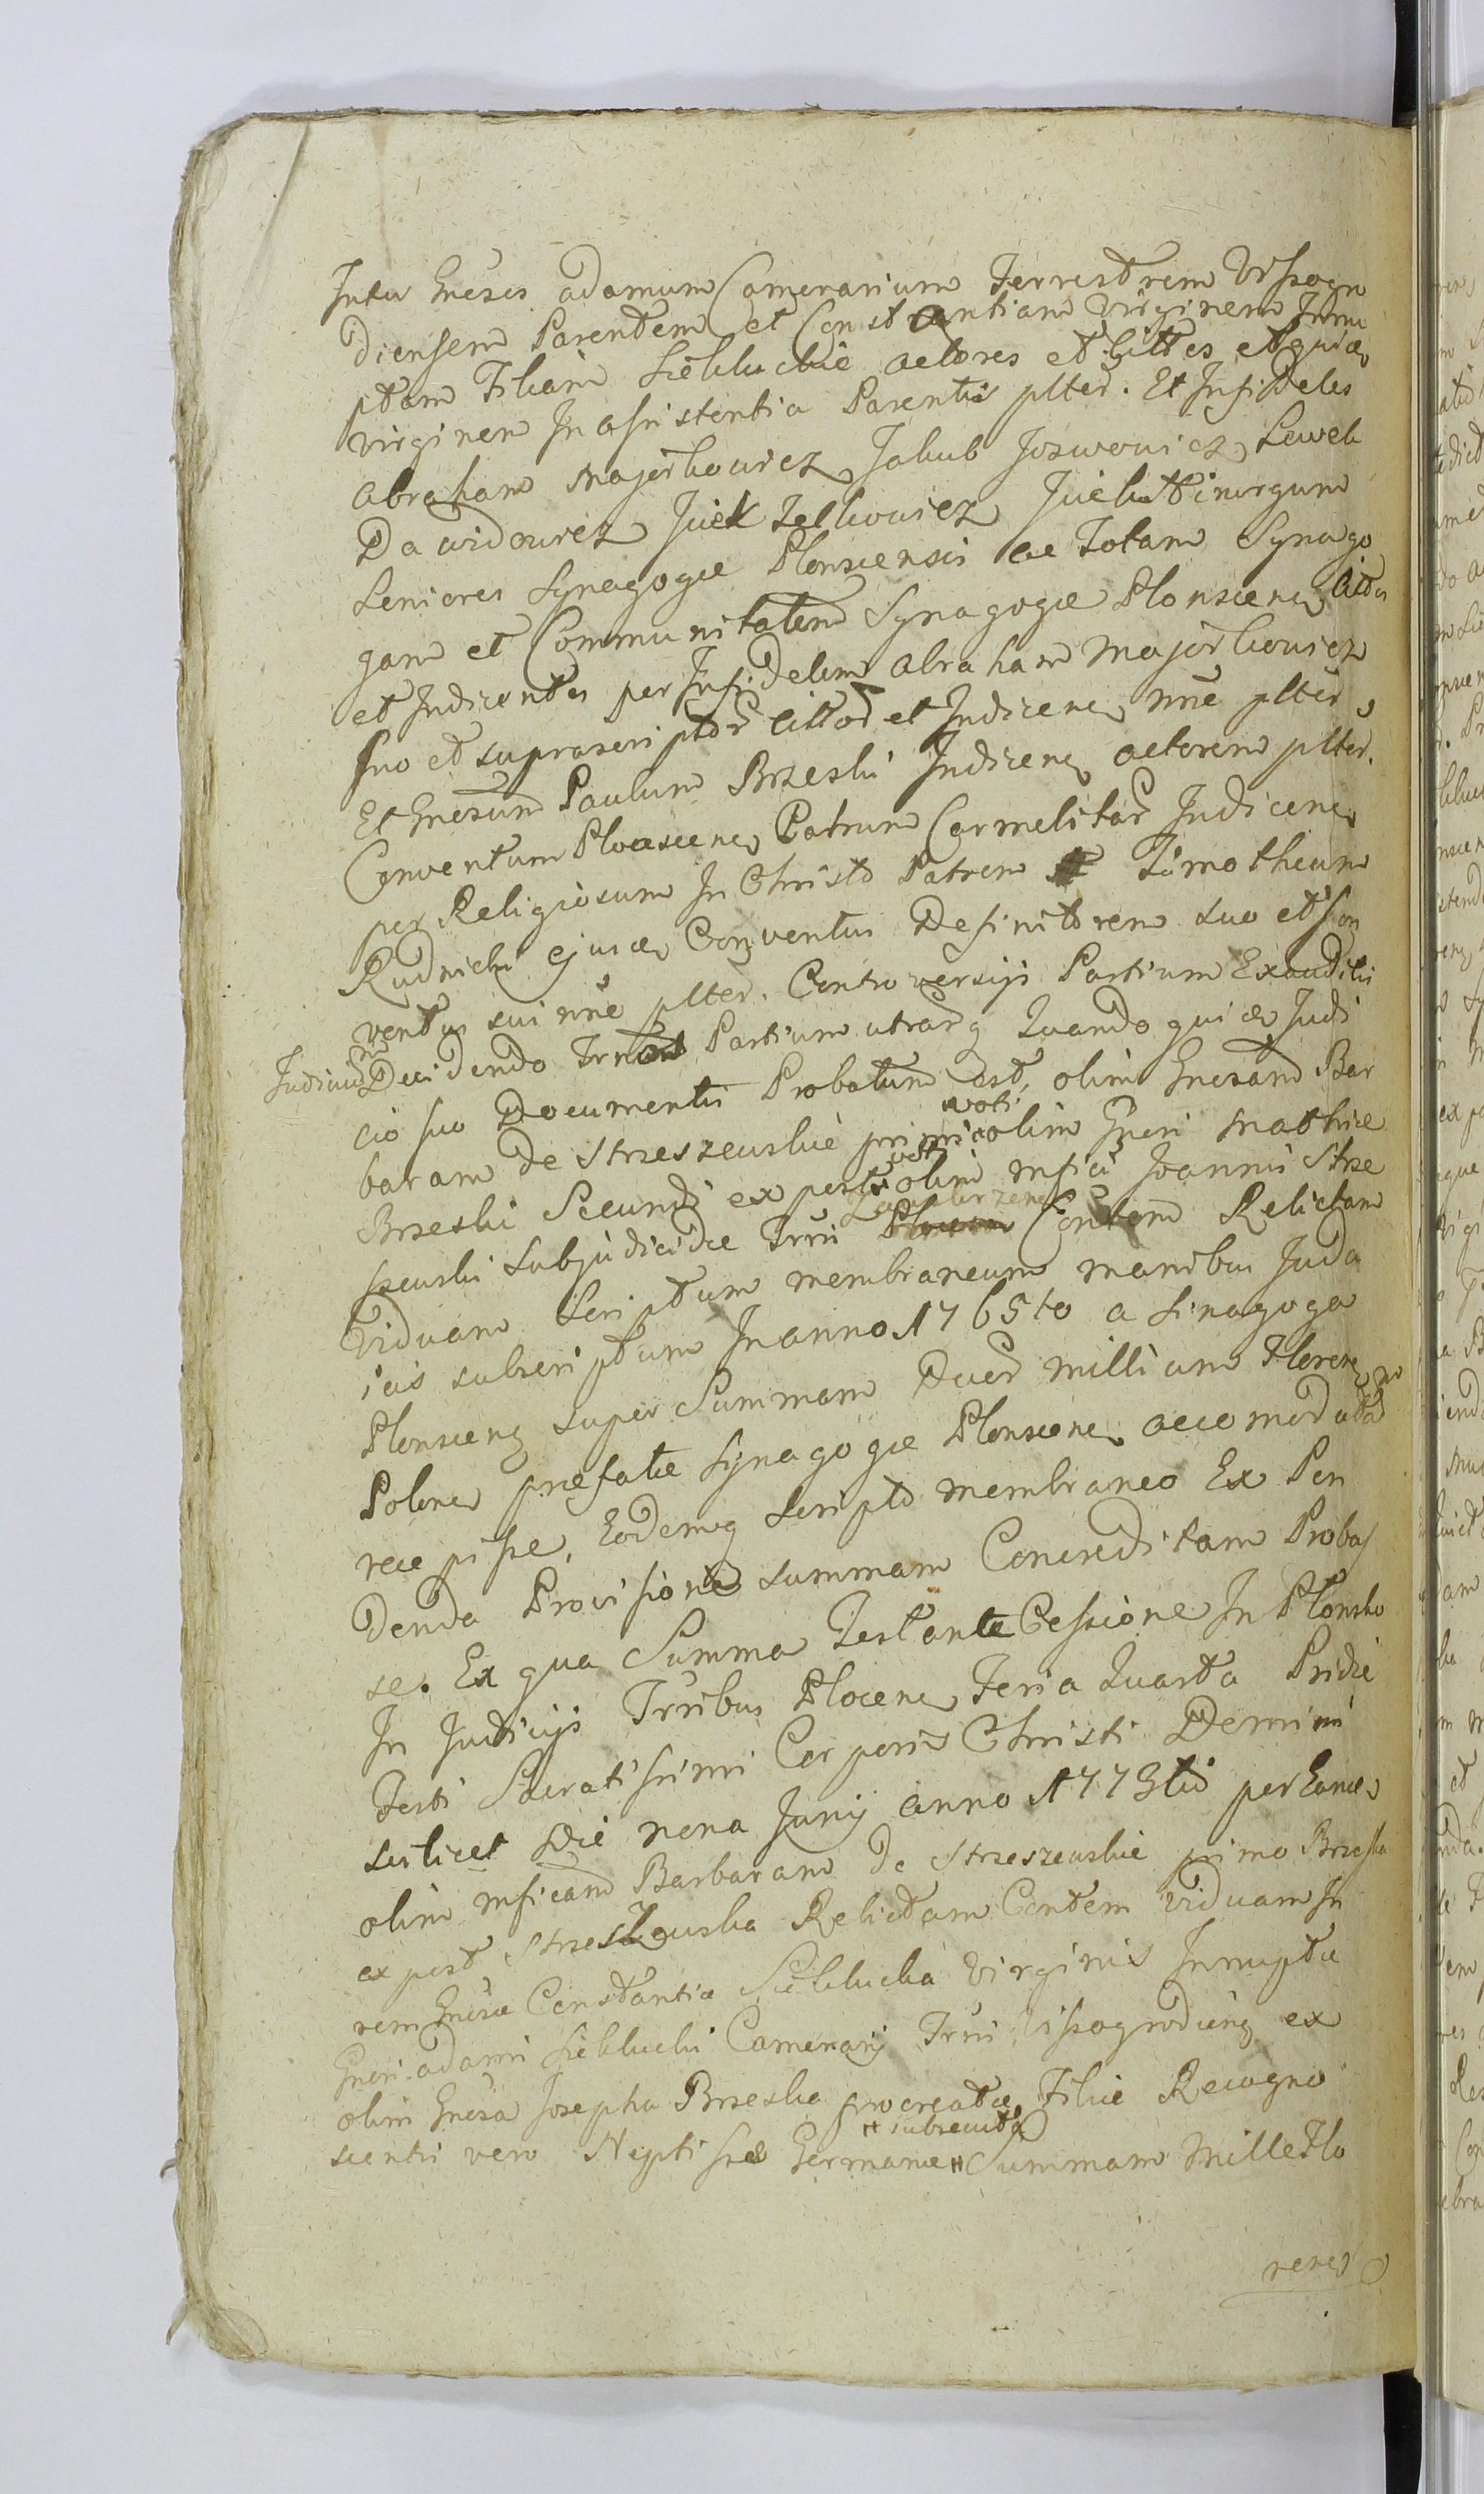 Inter Gnesos adamum Camerarium Terrestrem Vissogro
diensem Parentem et Constantiam Virginem Innu
ptam Filiam Siekluckie actores et Cittes et quidem
virginem In assistentia Parentis pltes. Et Infideles
Abraham Majorkowicz Jakub Joswowicz, Lewek
Dawidowicz Jcek Zelkowicz Jcek Chirurgum
Seniores Synagogæ Plonscensis ac Totam Synago
gam et Communitatem Synagogæ Plonscen, Citos
et Indicentes per Infidelem Abraham Majorkowicz
suo et suprascriptor Cittor et Indicen, nne plted,
Et Gnesum Paulum Brzeski Indicen, actorem plted.
Conventum Plonscen, Patrum Carmelitar Indicen,
per Religiosum In Christo Patrem Timotheum
Rudnicki ejusd Conventus Definitorem suo et Con
ventus sui nne plted. Controversijs Partium Exauditis
Judicium Decidendo Partium utrarq Quandoquidem Judi
cio suo Documentis Probatum est, olim Gnesam Bar
baram de Strzeszewskie primi voti olim Gnri Matthiæ
Brzeski Secundi ex post vero olim Mfici Joannis Strze
szewski Subjudicidæ Trris Zawkrzen Contem Relictam
Viduam Scriptum membraneum manibus Juda
icis subscriptum In anno 1765to a Sinagoga
Plonscen, super Summam Duor millium Floren,
Polon, præfatæ Synagogæ Plonscen, accomodatam
recepisse, Eodemq scripto membraneo Ex Pen
denda Provisione summam Concreditam Probas
se. Ex qua Summa Testante Cessione In Plonsko
In Judicijs Trribus Plocen, Feria Quarta Pridie
Festi Sacratissimi Corporis Christi Domini
scilicet Die nona Junij anno 1773tio per Eand
olim Mficam Barbaram de Strzeszewskie primo Brzeska
ex post Strzeszewska Relictam Contem viduam In
rem Gnesæ Constantiæ Siekluckà Virginis Innuptæ
Gnri adami Siekluckì Camerarij Trris Vissogrodien, ex
olim Gnesa Josepha Brzeska procreatæ, Filiæ Recogno
scentis vero Neptis suæ Germanæ # subsecuta # Summam Mille Flo
renos